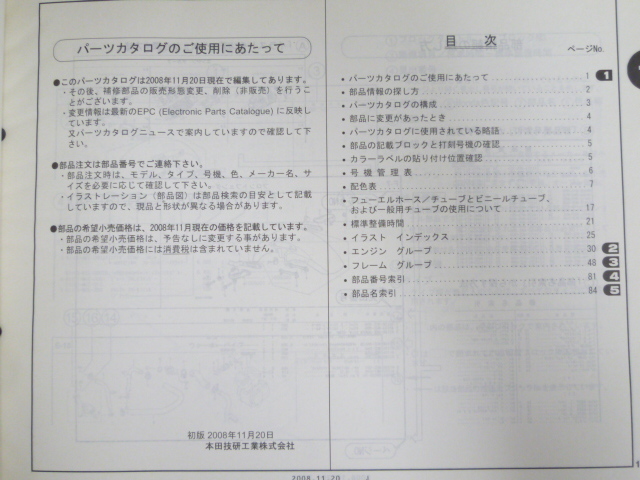 パーツカタログのご使用にあたって
●このパーツカタログは2008年11月20日現在で編集してあります。
・その後、補修部品の販売形態変更、削除（非販売）を行うこ
とがございます。
・変更情報は最新のEPC (Electronic Parts Catalogue) に反映し
ています。
又パーツカタログニュースで案内していますので確認して下
さい。
●部品注文は部品番号でご連絡下さい。
・部品注文時は、モデル、タイプ、号機、色、メーカー名、サ
イズを必要に応じて確認して下さい。
・イラストレーション（部品図）は部品検索の目安として記載
していますので、現品と形状が異なる場合があります。
●部品の希望小売価格は、2008年11月現在の価格を記載しています。
・部品の希望小売価格は、予告なしに変更する事があります。
・部品の希望小売価格には消費税は含まれていません。
初版 2008年11月20日
本田技研工業株式会社
目 次
ページNo.
・パーツカタログのご使用にあたって 1 1
・部品情報の探し方 2
・パーツカタログの構成 3
・部品に変更があったとき 4
・パーツカタログに使用されている略語 4
・部品の記載ブロックと打刻号機の確認 5
・カラーラベルの貼り付け位置確認 5
・号機管理表 6
・配色表 7
・フューエルホース／チューブとビニールチューブ、
および一般用チューブの使用について 17
・標準整備時間 21
・イラスト インデックス 25
・エンジン グループ 30 2
・フレーム グループ 48 3
・部品番号索引 81 4
・部品名索引 84 5
2008.11.20